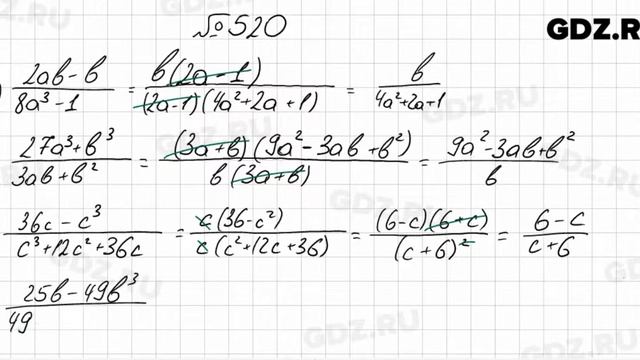 №520
GDZ.R
) (2ab - b)/(8a³ - 1) = (b(2a - 1))/((2a-1)(4a²+2a+1)) = b/(4a²+2a+1)
(27a³+b³)/(3ab+b²) = ((3a+b)(9a²-3ab+b²))/(b(3a+b)) = (9a²-3ab+b²)/b
(36c - c³)/(c³+12c²+36c) = (c(36-c²))/(c(c²+12c+36)) = ((6-c)(6+c))/((c+6)²) = (6-c)/(c+6)
(25b - 49b³)/(49
GDZ.RU
GDZ.RU
GDZ.RU
GDZ.RU